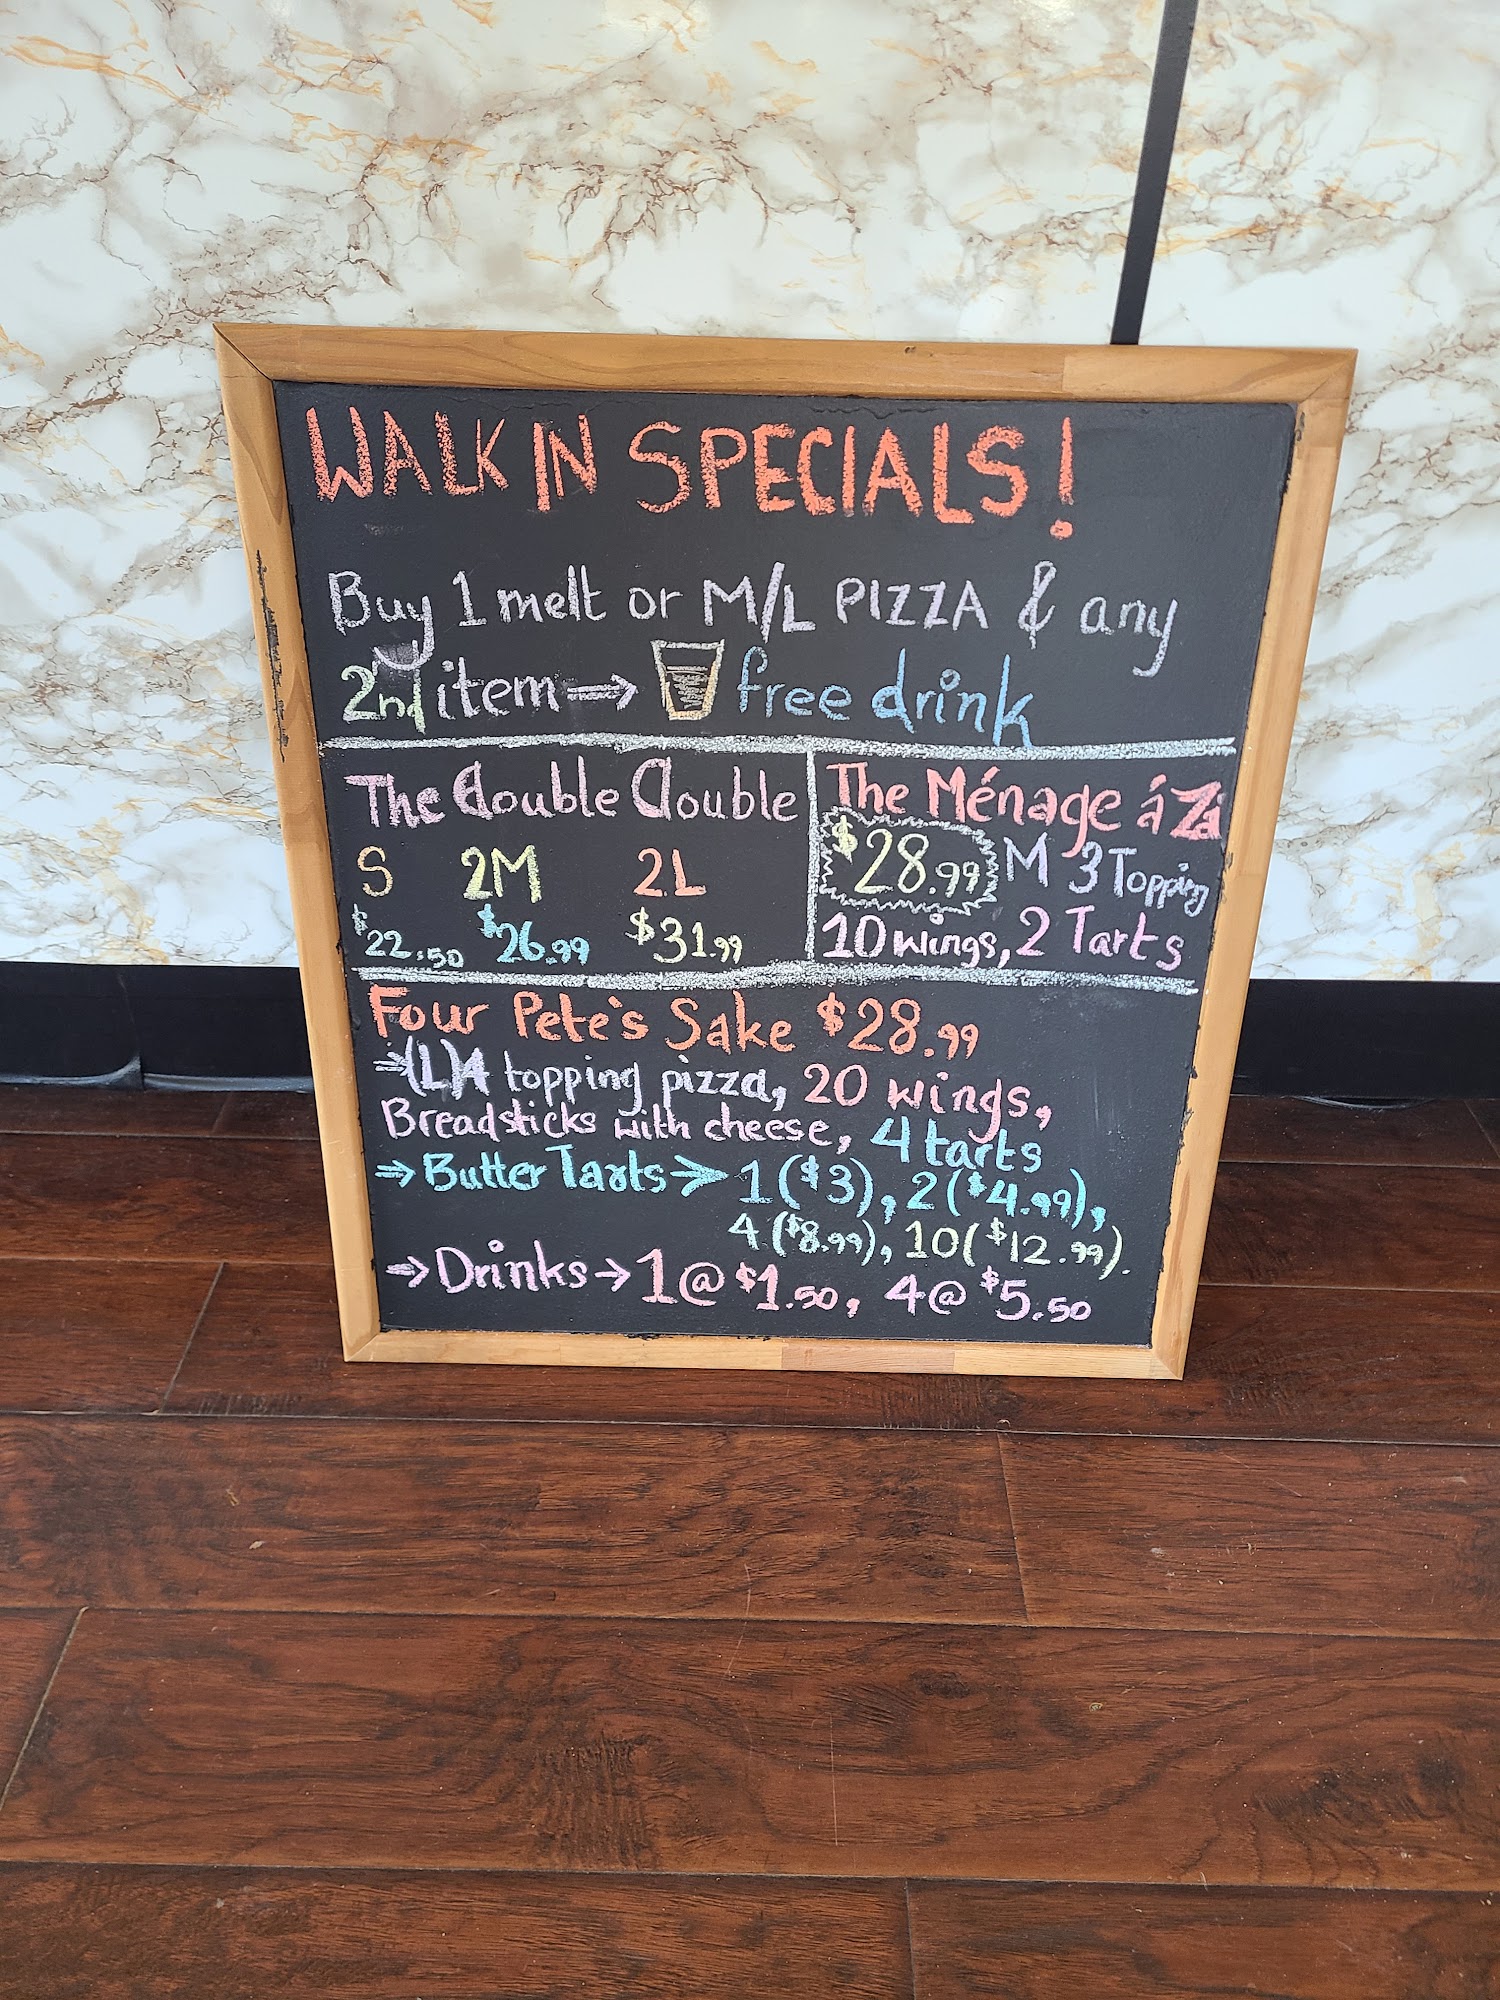 WALK IN SPECIALS!
Buy 1 melt or M/L PIZZA & any
2nd item ⇒ free drink
The double double
S 2M 2L
$22.50 $26.99 $31.99
The Ménage á Za
$28.99 M 3 Topping
10 wings, 2 Tarts
Four Pete's Sake $28.99
⇒(L)4 topping pizza, 20 wings,
Breadsticks with cheese, 4 tarts
⇒ Butter Tarts > 1 ($3), 2 ($4.99),
4 ($8.99), 10 ($12.99).
→ Drinks → 1 @ $1.50, 4 @ $5.50